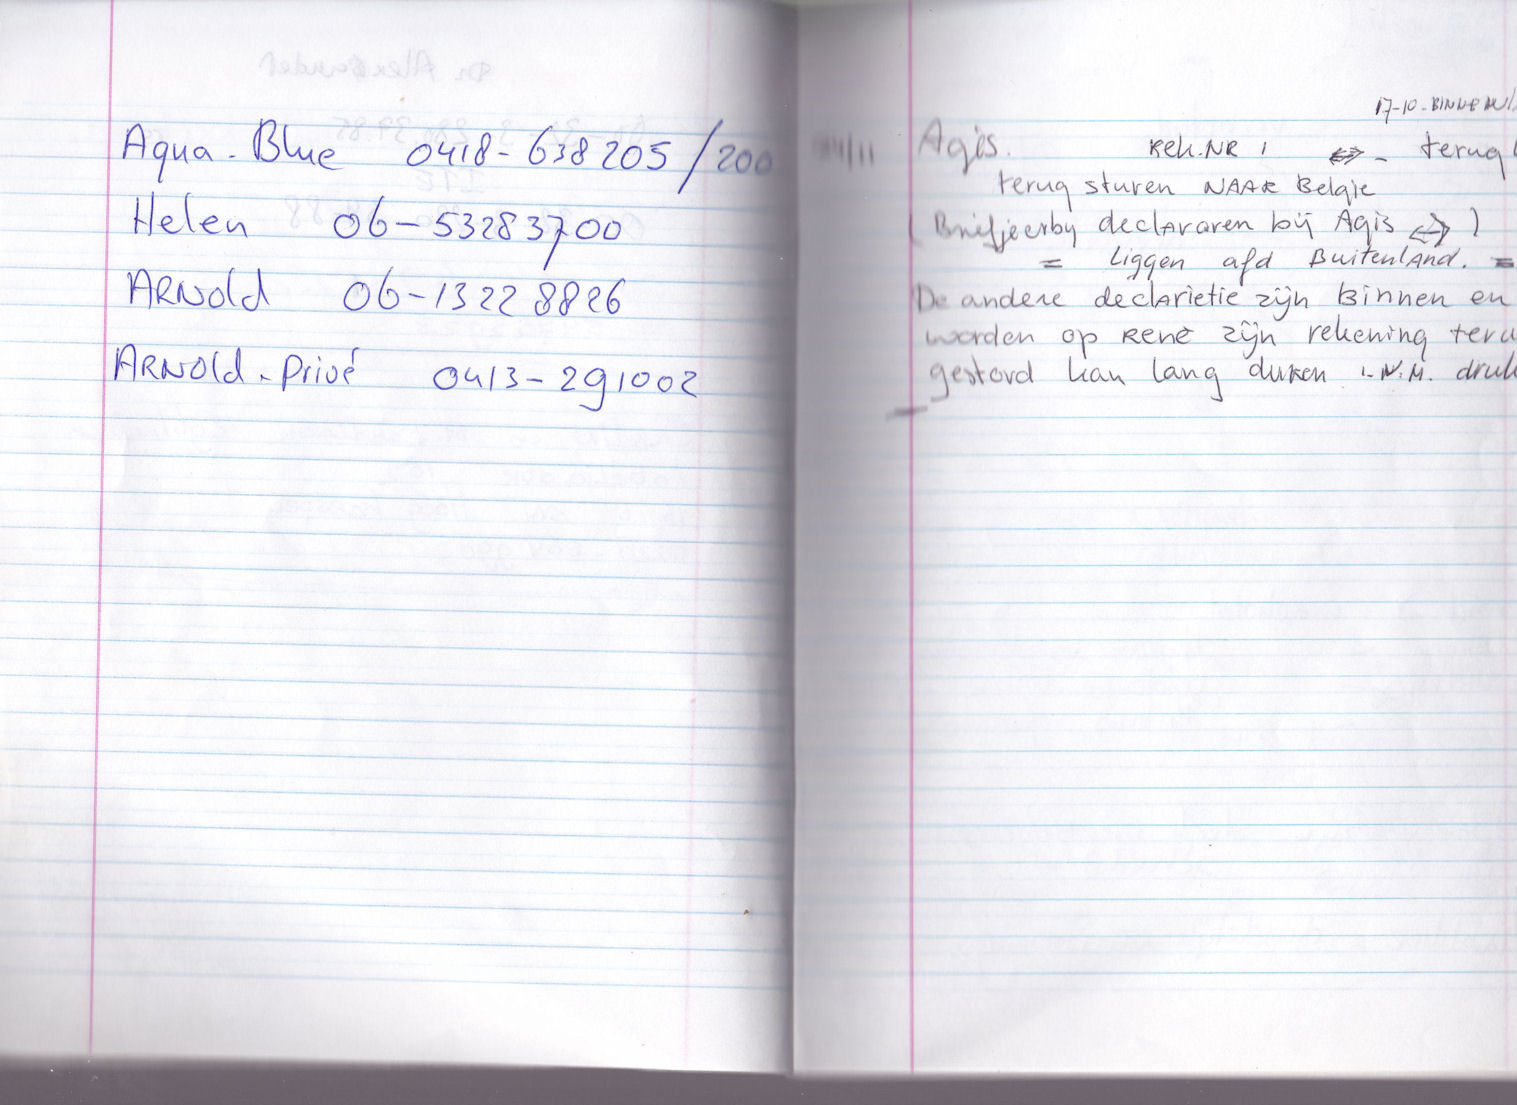 Aqua-Blue 0418-638205/200
Helen 06-53283700
ARNOld 06-13228826
ARNOld-Privé 0413-291002
17-10-BINNEN
Agis. Rek.NR 1 ⇔ - terug
terug sturen NAAR Belgie
(Briefjeerby declararen bij Agis ⇔)
= liggen afd Buitenland. =
De andere declarietie zijn Binnen en
worden op René zijn rekening teru
gestord kan lang duren druk